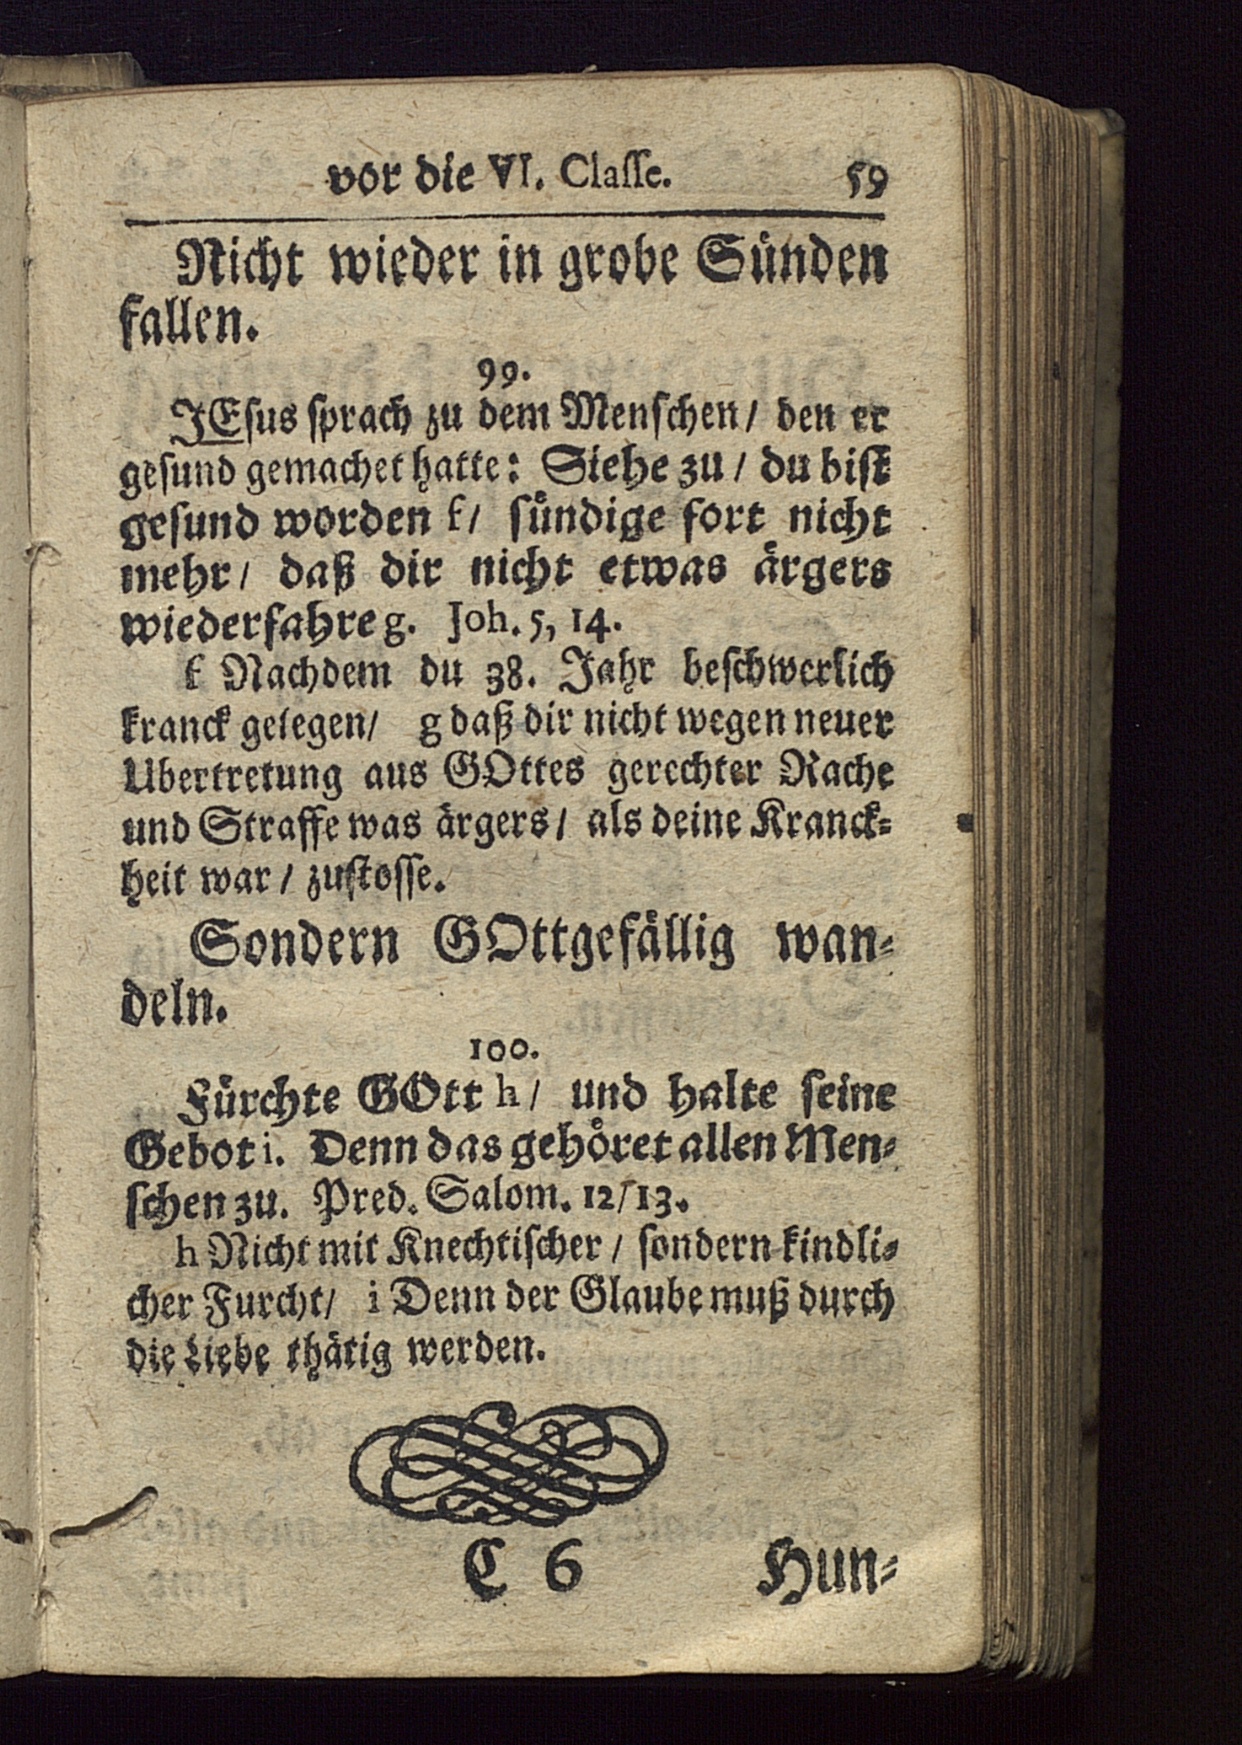 vor die VI. Classe. 59
Nicht wieder in grobe Sünden
fallen.
99.
JEsus sprach zu dem Menschen / den er
gesund gemachet hatte: Siehe zu / du bist
gesund worden f / sündige fort nicht
mehr / daß dir nicht etwas ärgers
wiederfahre g. Joh. 5, 14.
f Nachdem du 38. Jahr beschwerlich
kranck gelegen / g daß dir nicht wegen neuer
Ubertretung aus GOttes gerechter Rache
und Straffe was ärgers / als deine Kranck-
heit war / zustosse.
Sondern GOttgefällig wan-
deln.
100.
Fürchte GOtt h / und halte seine
Gebot i. Denn das gehöret allen Men-
schen zu. Pred. Salom. 12/13.
h Nicht mit Knechtischer / sondern kindli-
cher Furcht / i Denn der Glaube muß durch
die Liebe thätig werden.
C 6 Hun-